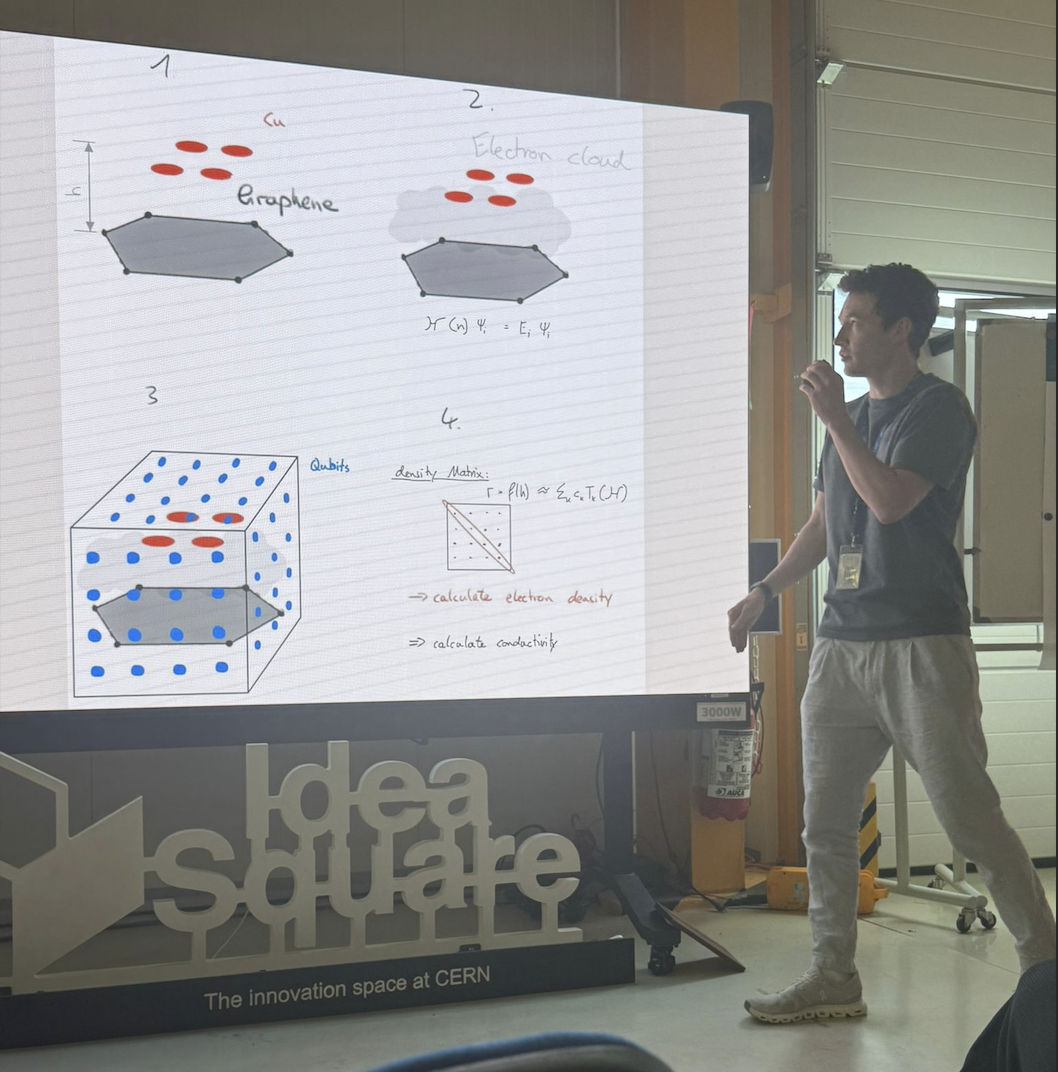 1
Cu
h
Graphene
2.
Electron cloud
H(n) Ψi = Ei Ψi
3
Qubits
4.
density Matrix:
Γ = f(h) ≈ Σk ck Tk(H)
⇒ calculate electron density
⇒ calculate conductivity
3000W
Idea
Square
The innovation space at CERN